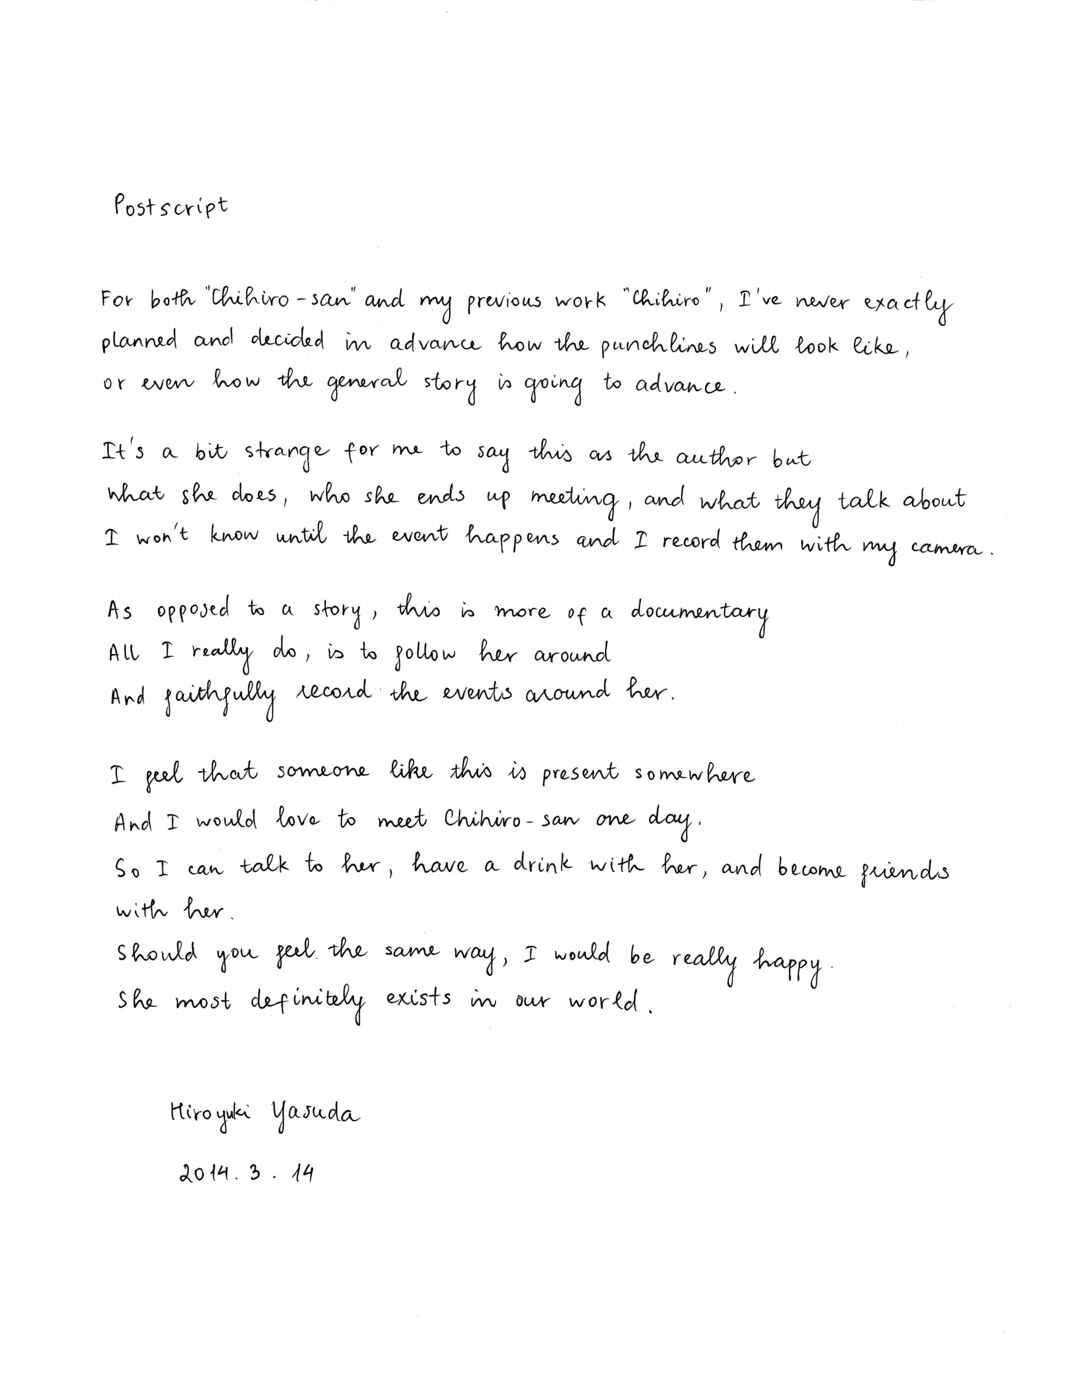 Postscript
For both "Chihiro-san" and my previous work "Chihiro", I've never exactly
planned and decided in advance how the punchlines will look like,
or even how the general story is going to advance.
It's a bit strange for me to say this as the author but
what she does, who she ends up meeting, and what they talk about
I won't know until the event happens and I record them with my camera.
As opposed to a story, this is more of a documentary
All I really do, is to follow her around
And faithfully record the events around her.
I feel that someone like this is present somewhere
And I would love to meet Chihiro-san one day.
So I can talk to her, have a drink with her, and become friends
with her.
Should you feel the same way, I would be really happy.
She most definitely exists in our world.
Hiroyuki Yasuda
2014.3.14